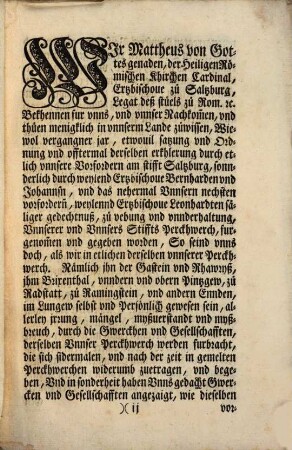 WIr Mattheus von Got-
tes genaden, der Heiligen Rö-
mischen Khirchen Cardinal,
Ertzbischoue zů Saltzburg,
Legat deß stüels zů Rom. ꝛc.
Bekhennen fur vnns, vnd vnnser Nachkom̄en, vnd
thůen menigklich in vnnserm Lande zůwissen, Wie-
wol vergangner jar, etwouil satzung vnd Ord-
nung vnd offtermal derselben erkhlerung durch et-
lich vnnsere Vorfordern am stifft Saltzburg, sonn-
derlich durch weylend Ertzbischoue Bernharden vnd
Johannsn, vnd das nehermal Vnnsern nechsten
vorfordern, weylennd Ertzbischoue Leonhardten sä-
liger gedechtnuß, zů vebung vnd vnnderhaltung,
Vnnserer vnd Vnnsers Stiffts Perckhwerch, fur-
genom̄en vnd gegeben worden, So seind vnns
doch, als wir in etlichen derselben vnnserer Perckh-
werch. Nämlich jhn der Gastein vnd Rhawryß,
jhm Brixenthal, vnndern vnd obern Pintzgew, zů
Radstatt, zů Ramingstein, vnd andern Ennden,
im Lungew selbst vnd Persönlich gewesen sein, al-
lerley jrrung, mängel, myßuerstandt vnd myß-
breuch, durch die Gwerckhen vnd Gesellschafften,
derselben Vnnser Perckhwerch werden furbracht,
die sich sidermalen, vnd nach der zeit in gemelten
Perckhwerchen widerumb zuetragen, vnd bege-
ben, Vnd in sonderheit haben Vnns gedacht Gwer-
cken vnd Gesellschafften angezaigt, wie dieselben
)( ij vor-